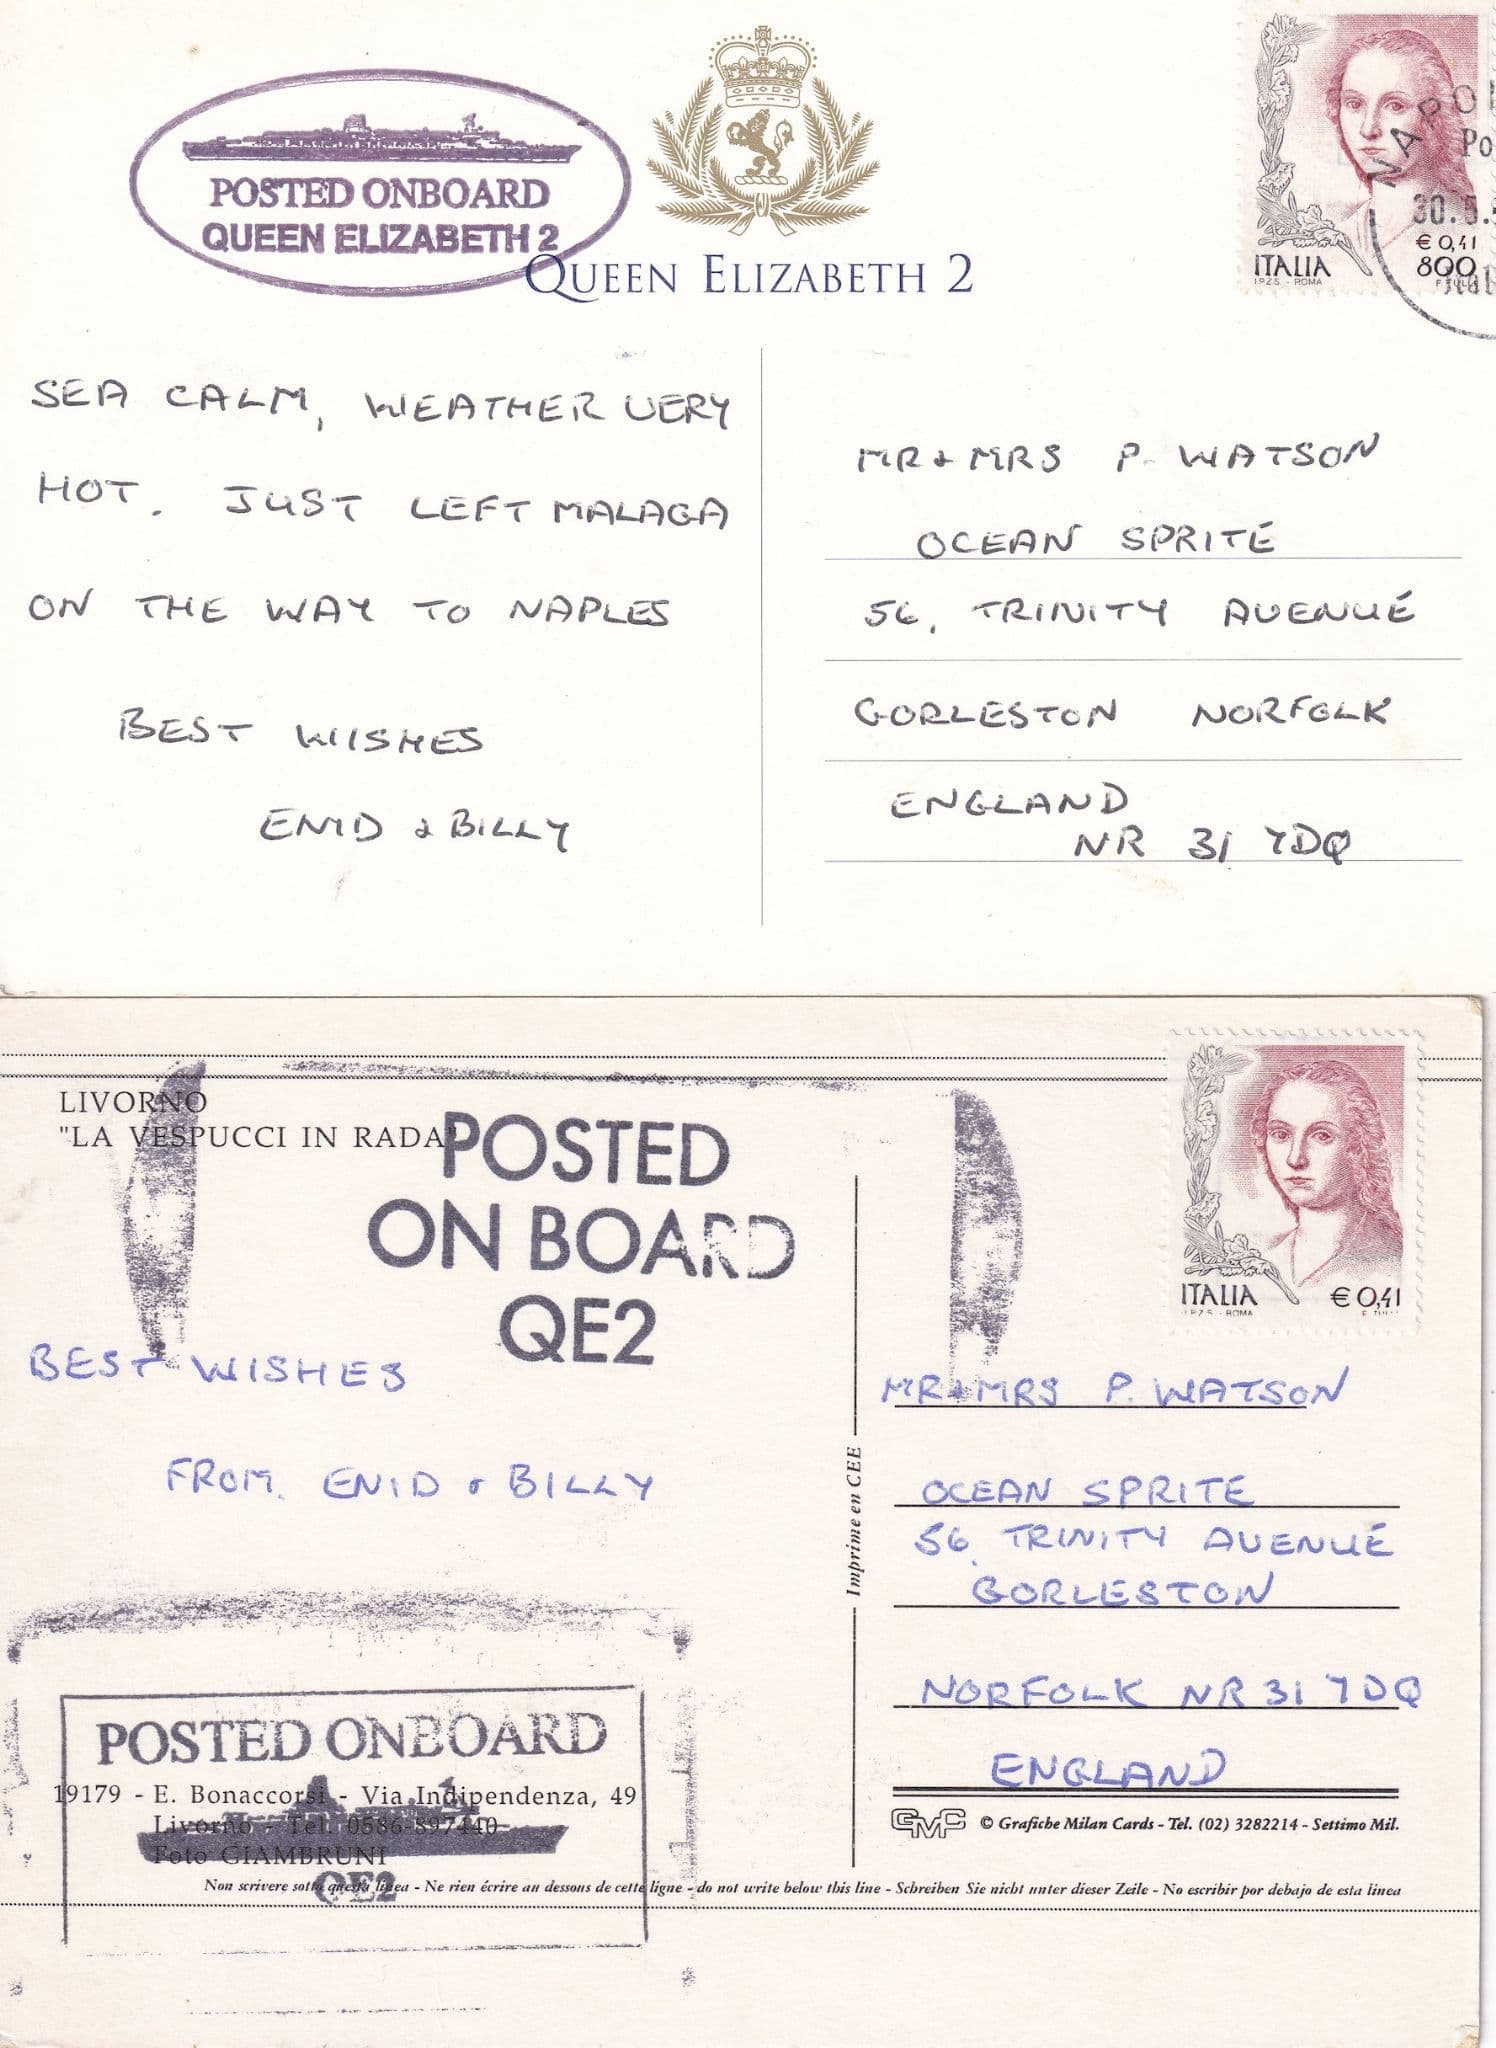 POSTED ONBOARD
QUEEN ELIZABETH 2
QUEEN ELIZABETH 2
NAPOL
Po
30.5.
€ 0,41
800
ITALIA
I.P.Z.S. - ROMA
SEA CALM, WEATHER VERY
HOT. JUST LEFT MALAGA
ON THE WAY TO NAPLES
BEST WISHES
ENID & BILLY
MR & MRS P. WATSON
OCEAN SPRITE
56, TRINITY AVENUE
GORLESTON NORFOLK
ENGLAND
NR 31 7DQ
LIVORNO
"LA VESPUCCI IN RADA"
POSTED
ON BOARD
QE2
ITALIA € 0,41
I.P.Z.S. - ROMA
BEST WISHES
FROM. ENID & BILLY
MR & MRS P. WATSON
OCEAN SPRITE
56, TRINITY AVENUE
GORLESTON
NORFOLK NR 31 7DQ
ENGLAND
Imprime en CEE
POSTED ONBOARD
19179 - E. Bonaccorsi - Via Indipendenza, 49
Livorno - Tel. 0586-897440
Foto GIAMBRUNI
QE2
GMC © Grafiche Milan Cards - Tel. (02) 3282214 - Settimo Mil.
Non scrivere sotto questa linea - Ne rien écrire au dessons de cette ligne - do not write below this line - Schreiben Sie nicht unter dieser Zeile - No escribir por debajo de esta linea